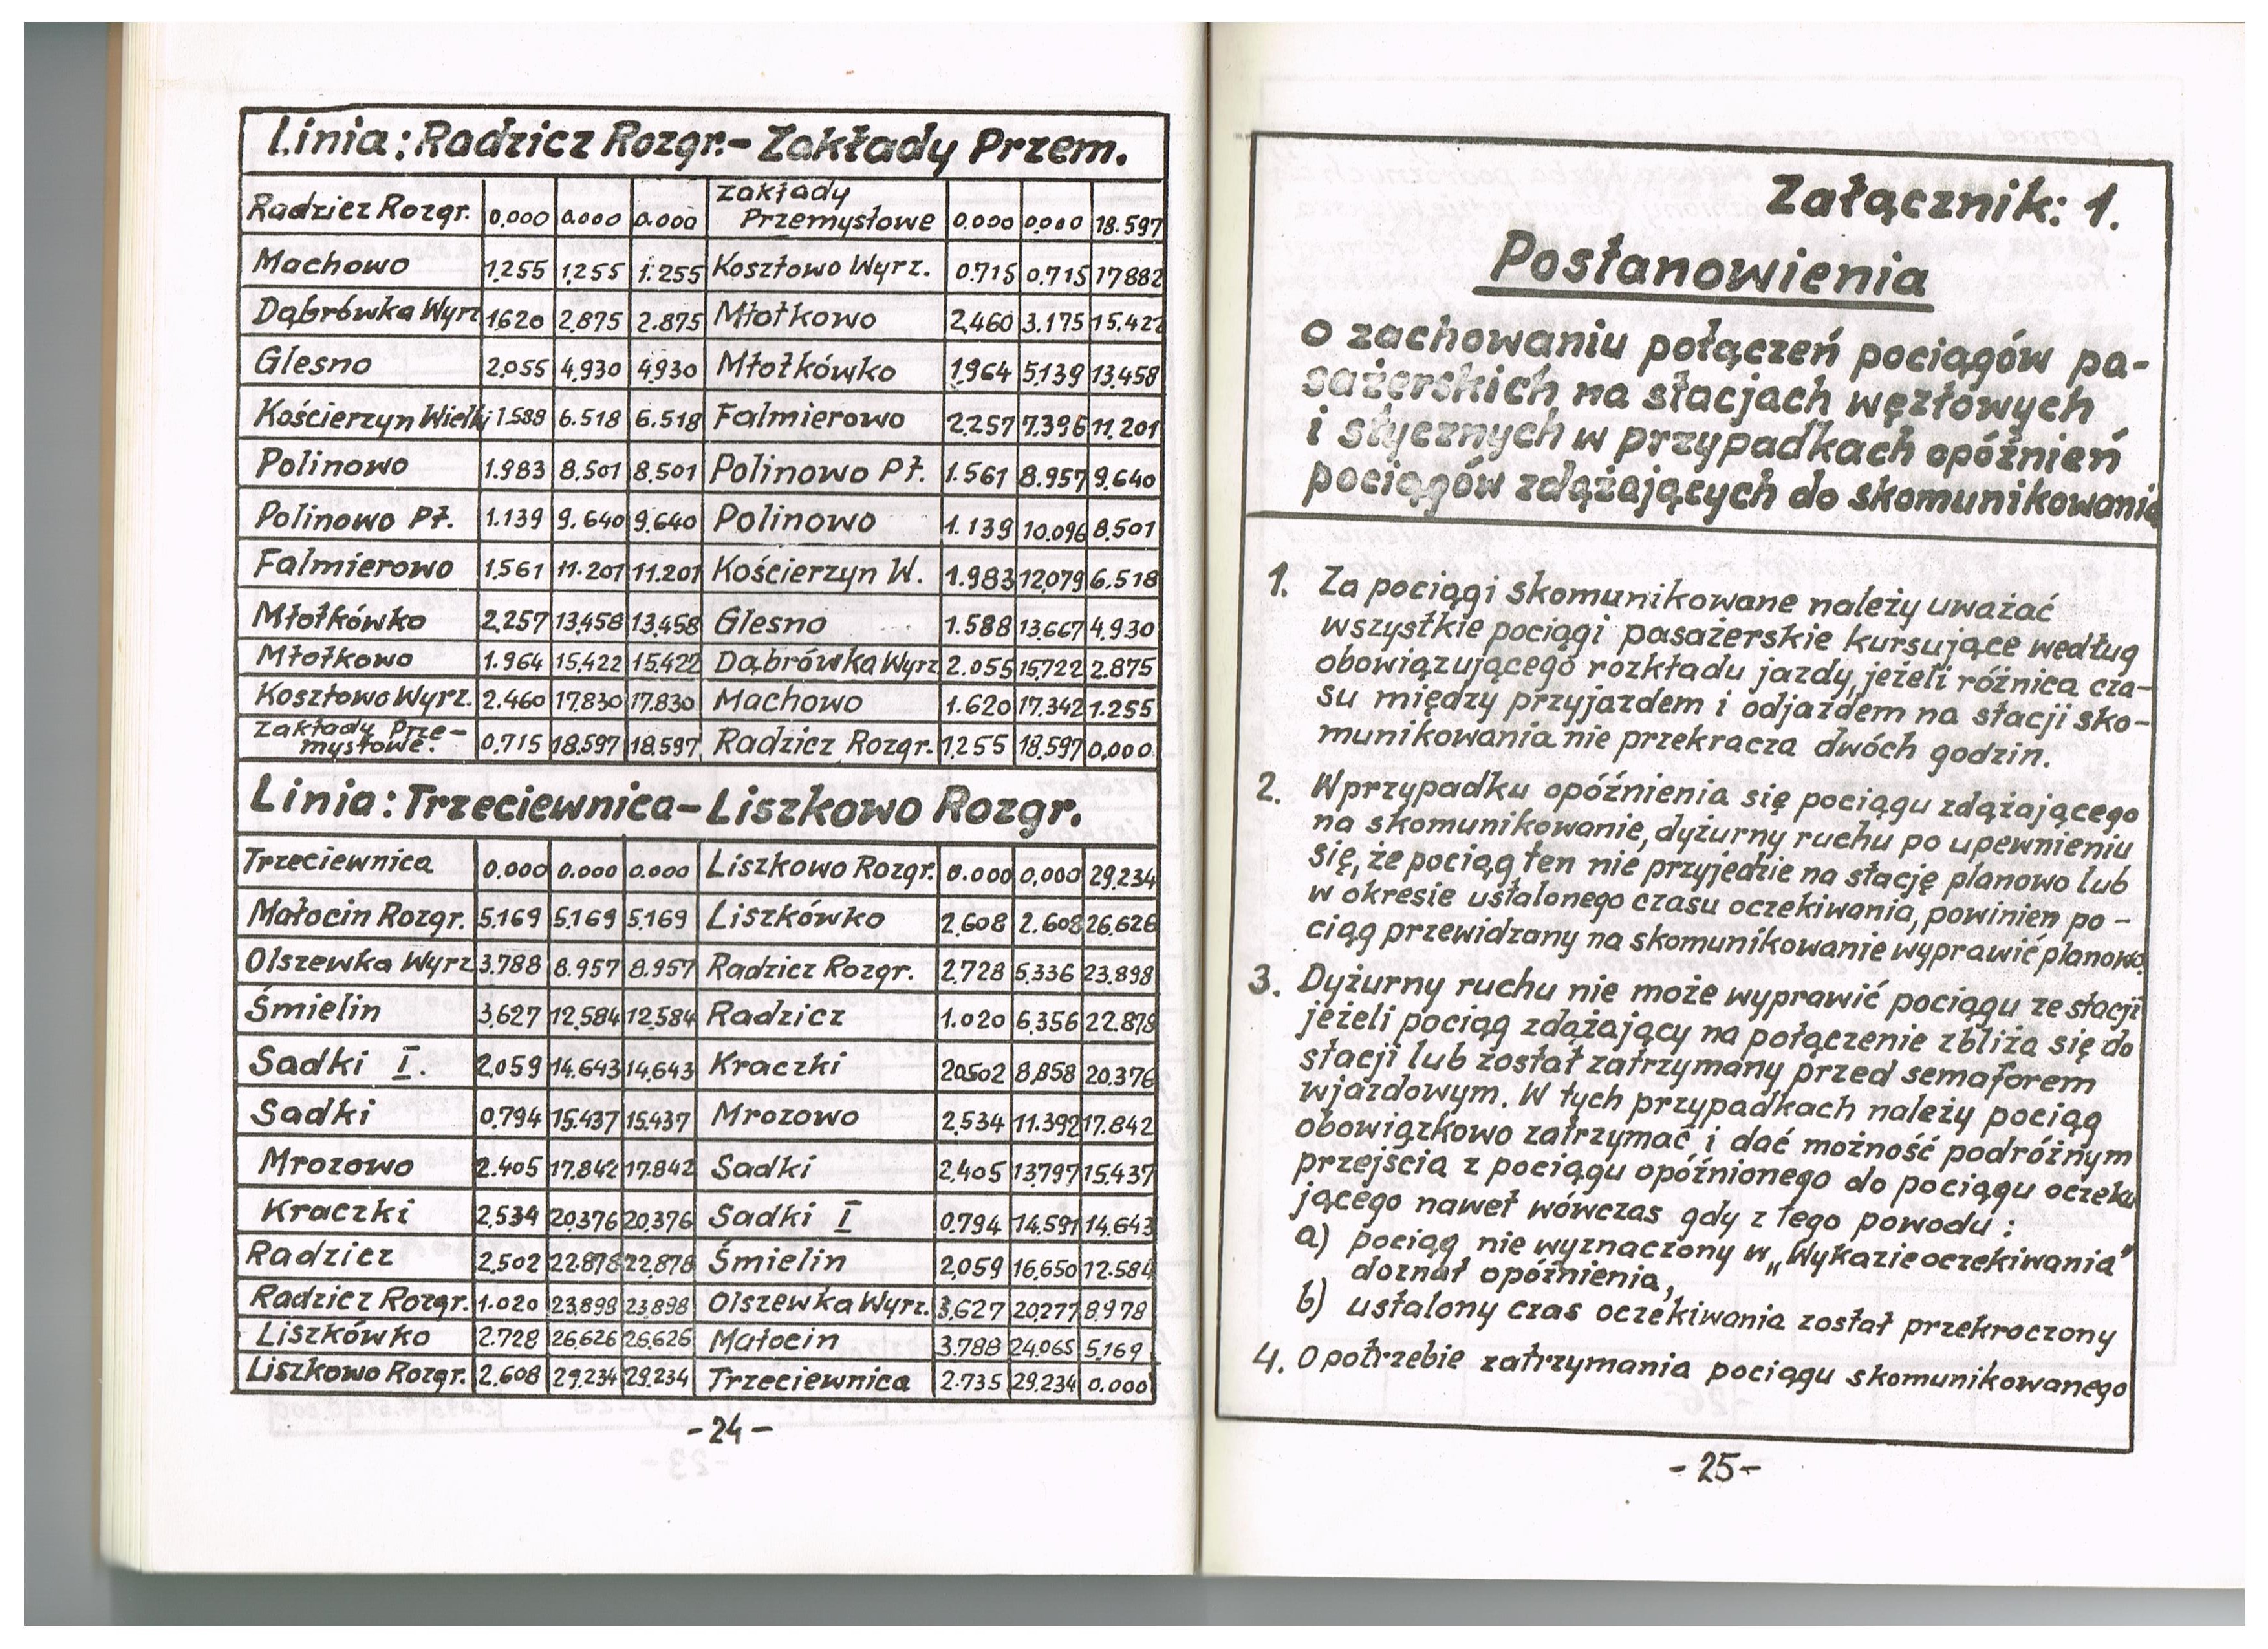 Linia: Radzicz Rozgr.-Zakłady Przem.
Radzicz Rozgr. 0.000 0.000 0.000 Zakłady Przemysłowe 0.000 0.000 18.597
Machowo 1.255 1.255 1.255 Kosztowo Wyrz. 0.715 0.715 17882
Dąbrówka Wyrz 1.620 2.875 2.875 Młotkowo 2.460 3.175 15.422
Glesno 2.055 4.930 4.930 Młotkówko 1.964 5.139 13.458
Kościerzyn Wielki 1.588 6.518 6.518 Falmierowo 2.257 7.396 11.201
Polinowo 1.983 8.501 8.501 Polinowo Pł. 1.561 8.957 9.640
Polinowo Pł. 1.139 9.640 9.640 Polinowo 1.139 10.096 8.501
Falmierowo 1.561 11.201 11.201 Kościerzyn W. 1.983 12.079 6.518
Młotkówko 2.257 13.458 13.458 Glesno 1.588 13.667 4.930
Młotkowo 1.964 15.422 15.422 Dąbrówka Wyrz 2.055 15.722 2.875
Kosztowo Wyrz. 2.460 17.830 17.830 Machowo 1.620 17.342 1.255
Zakłady Prze-
mysłowe. 0.715 18.597 18.597 Radzicz Rozgr. 1.255 18.597 0.000
Linia: Trzeciewnica-Liszkowo Rozgr.
Trzeciewnica 0.000 0.000 0.000 Liszkowo Rozgr. 0.000 0.000 29.234
Matocin Rozgr. 5.169 5.169 5.169 Liszkówko 2.608 2.608 26.626
Olszewka Wyrz 3.788 8.957 8.957 Radzicz Rozgr. 2.728 5.336 23.898
Śmielin 3.627 12.584 12.584 Radzicz 1.020 6.356 22.878
Sadki I. 2.059 14.643 14.643 Kraczki 20502 8.858 20.376
Sadki 0.794 15.437 15.437 Mrozowo 2.534 11.392 17.842
Mrozowo 2.405 17.842 17.842 Sadki 2.405 13.797 15.437
Kraczki 2.534 20.376 20.376 Sadki I 0.794 14.591 14.643
Radzicz 2.502 22.878 22.878 Śmielin 2.059 16.650 12.584
Radzicz Rozgr. 1.020 23.898 23.898 Olszewka Wyrz. 3.627 20.277 8.978
Liszkówko 2.728 26.626 26.626 Matocin 3.788 24.065 5.169
Liszkowo Rozgr. 2.608 29.234 29.234 Trzeciewnica 2.735 29.234 0.000
-24-
Załącznik: 1.
Postanowienia
o zachowaniu połączeń pociągów pa-
sażerskich na stacjach węzłowych
i stycznych w przypadkach opóźnień
pociągów zdążających do skomunikowania
1. Za pociągi skomunikowane należy uważać
wszystkie pociągi pasażerskie kursujące według
obowiązującego rozkładu jazdy, jeżeli różnica cza-
su między przyjazdem i odjazdem na stacji sko-
munikowania nie przekracza dwóch godzin.
2. W przypadku opóźnienia się pociągu zdążającego
na skomunikowanie, dyżurny ruchu po upewnieniu
się, że pociąg ten nie przyjedzie na stację planowo lub
w okresie ustalonego czasu oczekiwania, powinien po-
ciąg przewidzany na skomunikowanie wyprawić planowo.
3. Dyżurny ruchu nie może wyprawić pociągu ze stacji
jeżeli pociąg zdążający na połączenie zbliża się do
stacji lub został zatrzymany przed semaforem
wjazdowym. W tych przypadkach należy pociąg
obowiązkowo zatrzymać i dać możność podróżnym
przejścia z pociągu opóźnionego do pociągu oczeku
jącego nawet wówczas gdy z tego powodu :
a) pociąg nie wyznaczony w „Wykazie oczekiwania”
doznał opóźnienia,
b) ustalony czas oczekiwania został przekroczony
4. O potrzebie zatrzymania pociągu skomunikowanego
-25-